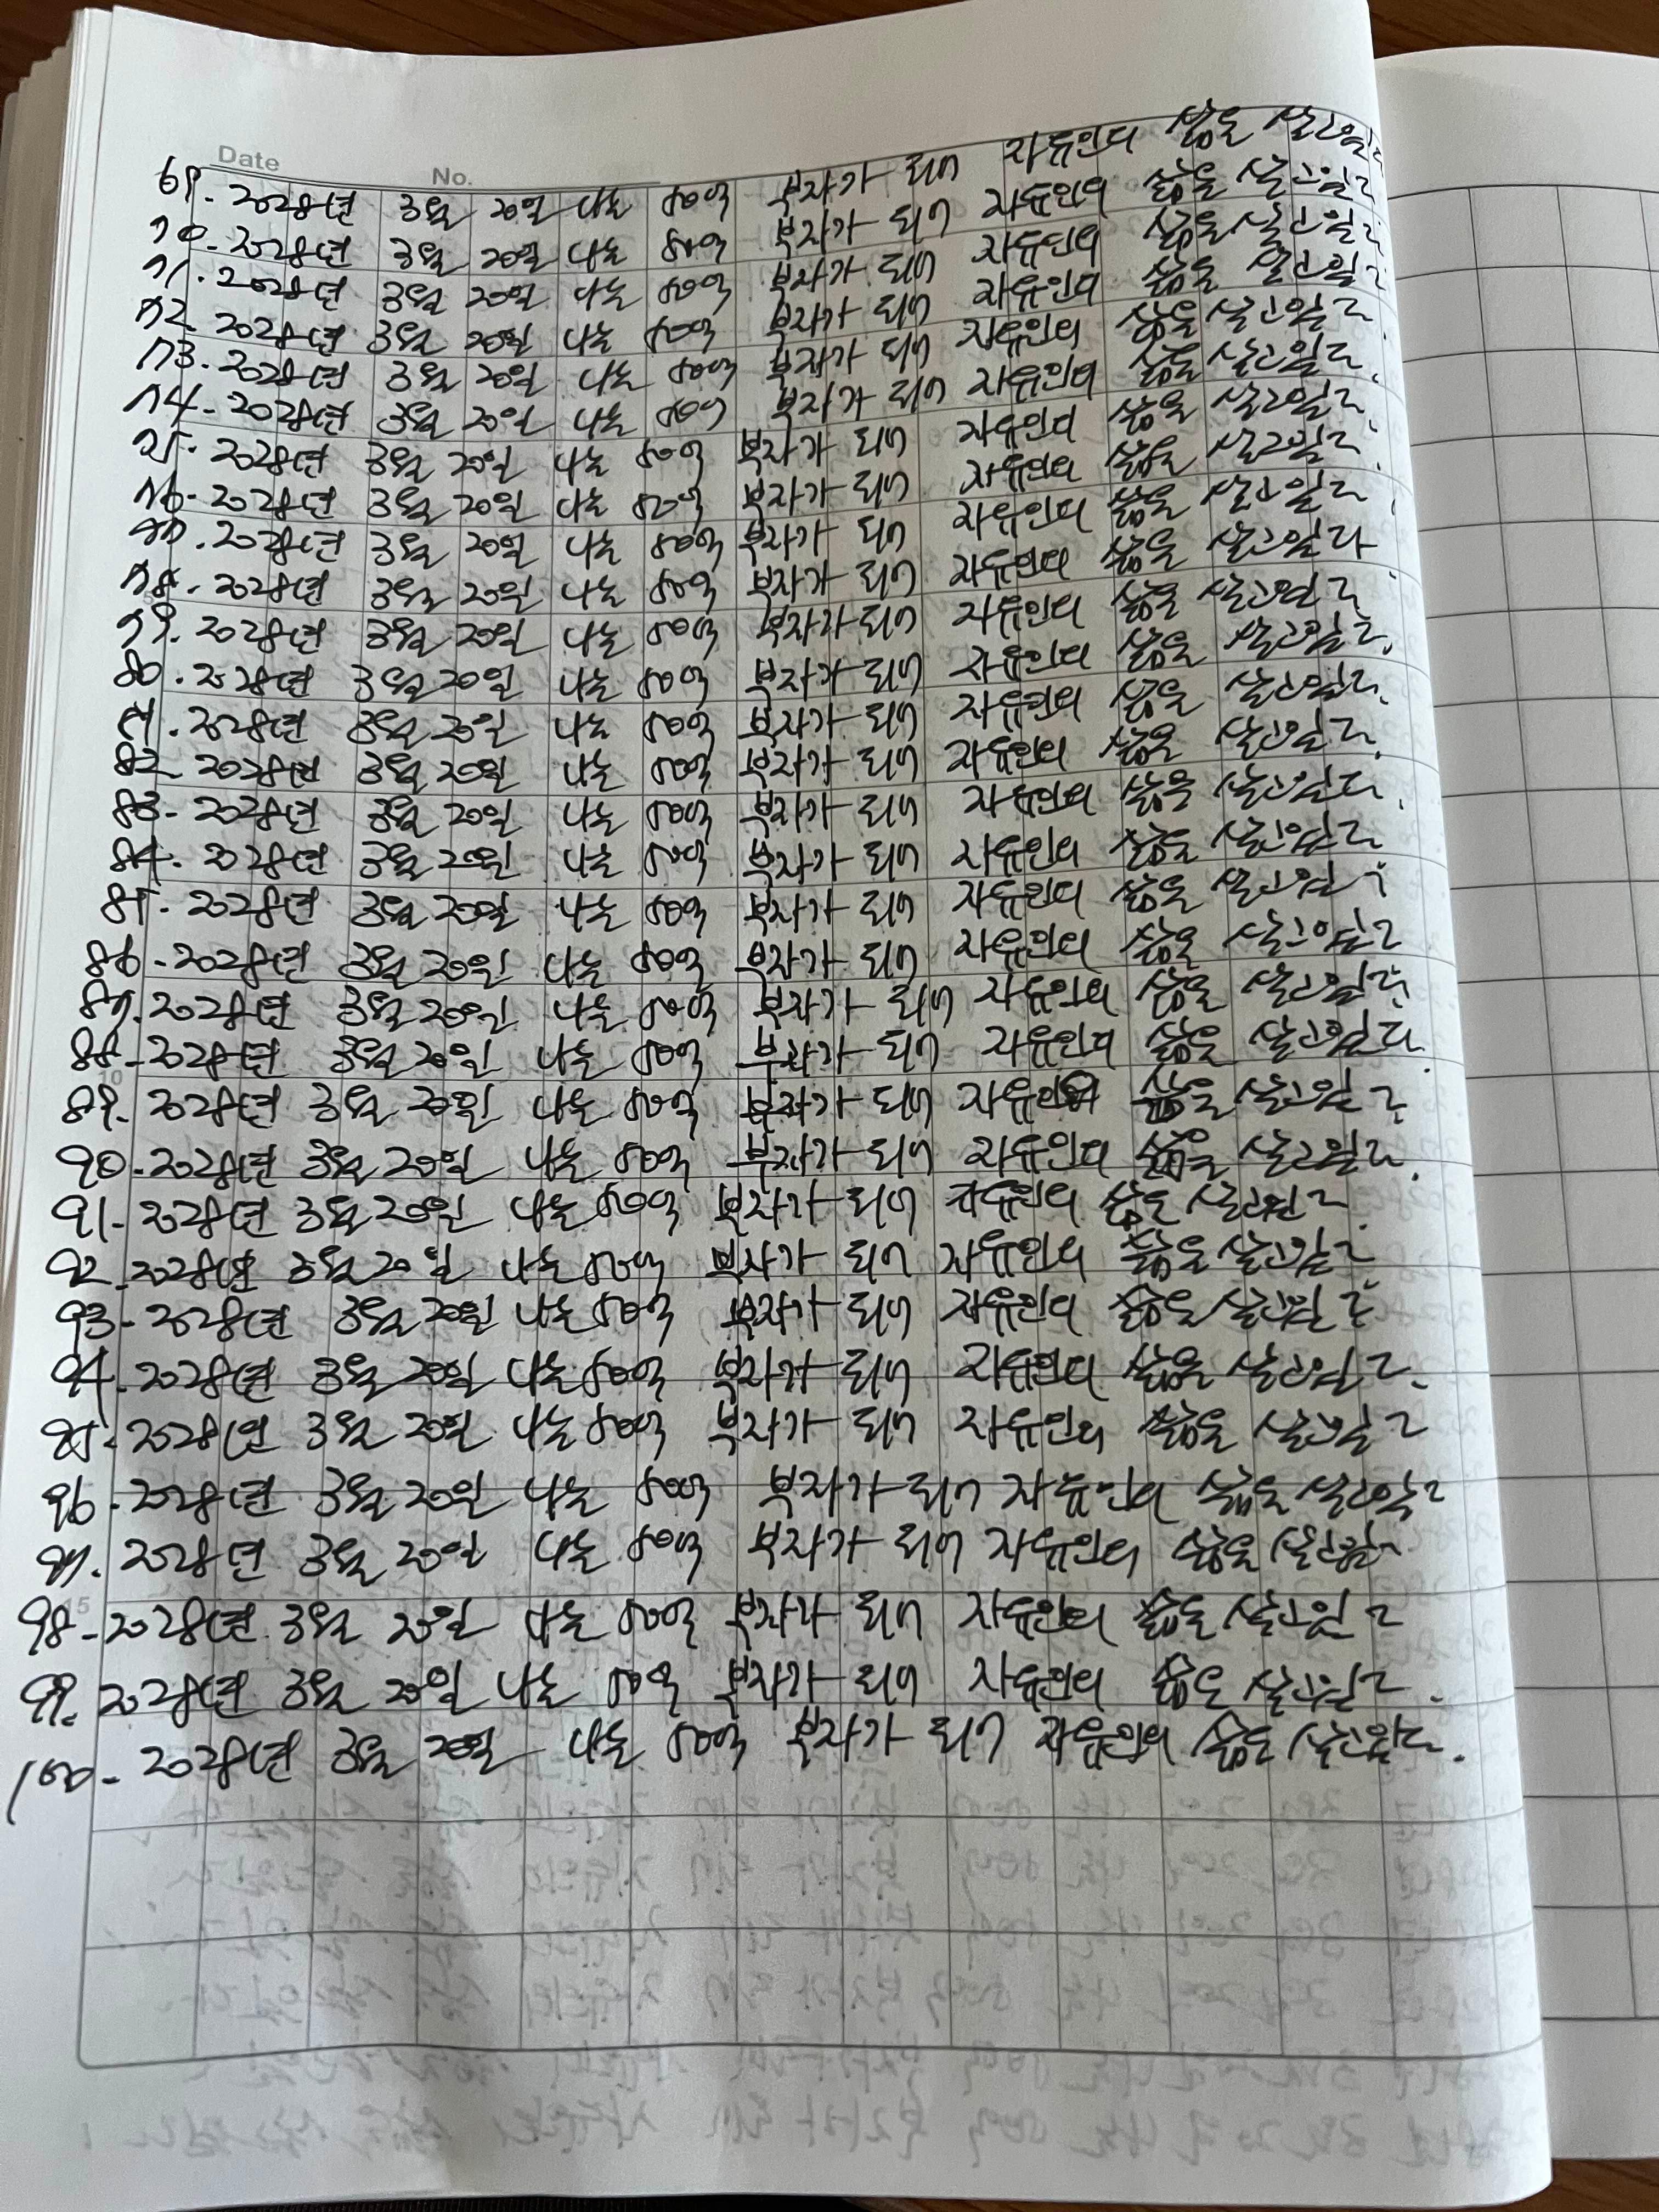 Date No.
69. 2028년 3월 20일 나는 80억 부자가 되어 자유인의 삶을 살고있다.
70. 2028년 3월 20일 나는 80억 부자가 되어 자유인의 삶을 살고있다
71. 2028년 3월 20일 나는 80억 부자가 되어 자유인의 삶을 살고있다.
72. 2028년 3월 20일 나는 80억 부자가 되어 자유인의 삶을 살고있다
73. 2028년 3월 20일 나는 80억 부자가 되어 자유인의 삶을 살고있다.
74- 2028년 3월 20일 나는 80억 부자가 되어 자유인의 삶을 살고있다.
75. 2028년 3월 20일 나는 80억 부자가 되어 자유인의 삶을 살고있다.
76- 2028년 3월 20일 나는 80억 부자가 되어 자유인의 삶을 살고있다.
77. 2028년 3월 20일 나는 80억 부자가 되어 자유인의 삶을 살고있다.
78. 2028년 3월 20일 나는 80억 부자가 되어 자유인의 삶을 살고있다.
79. 2028년 3월 20일 나는 80억 부자가 되어 자유인의 삶을 살고있다
80. 2028년 3월 20일 나는 80억 부자가 되어 자유인의 삶을 살고있다.
81. 2028년 3월 20일 나는 80억 부자가 되어 자유인의 삶을 살고있다.
82- 2028년 3월 20일 나는 80억 부자가 되어 자유인의 삶을 살고있다.
83- 2028년 3월 20일 나는 80억 부자가 되어 자유인의 삶을 살고있다.
84. 2028년 3월 20일 나는 80억 부자가 되어 자유인의 삶을 살고있다
85- 2028년 3월 20일 나는 80억 부자가 되어 자유인의 삶을 살고있다
86- 2028년 3월 20일 나는 80억 부자가 되어 자유인의 삶을 살고있다
87. 2028년 3월 20일 나는 80억 부자가 되어 자유인의 삶을 살고있다.
88- 2028년 3월 20일 나는 80억 부자가 되어 자유인의 삶을 살고있다.
89. 2028년 3월 20일 나는 80억 부자가 되어 자유인의 삶을 살고있다.
90- 2028년 3월 20일 나는 80억 부자가 되어 자유인의 삶을 살고있다.
91- 2028년 3월 20일 나는 80억 부자가 되어 자유인의 삶을 살고있다.
92- 2028년 3월 20일 나는 80억 부자가 되어 자유인의 삶을 살고있다
93- 2028년 3월 20일 나는 80억 부자가 되어 자유인의 삶을 살고있다
94- 2028년 3월 20일 나는 80억 부자가 되어 자유인의 삶을 살고있다.
95- 2028년 3월 20일 나는 80억 부자가 되어 자유인의 삶을 살고있다
96- 2028년 3월 20일 나는 80억 부자가 되어 자유인의 삶을 살고있다
97. 2028년 3월 20일 나는 80억 부자가 되어 자유인의 삶을 살고있다
98- 2028년 3월 20일 나는 80억 부자가 되어 자유인의 삶을 살고있다
99. 2028년 3월 20일 나는 80억 부자가 되어 자유인의 삶을 살고있다.
100- 2028년 3월 20일 나는 80억 부자가 되어 자유인의 삶을 살고있다.